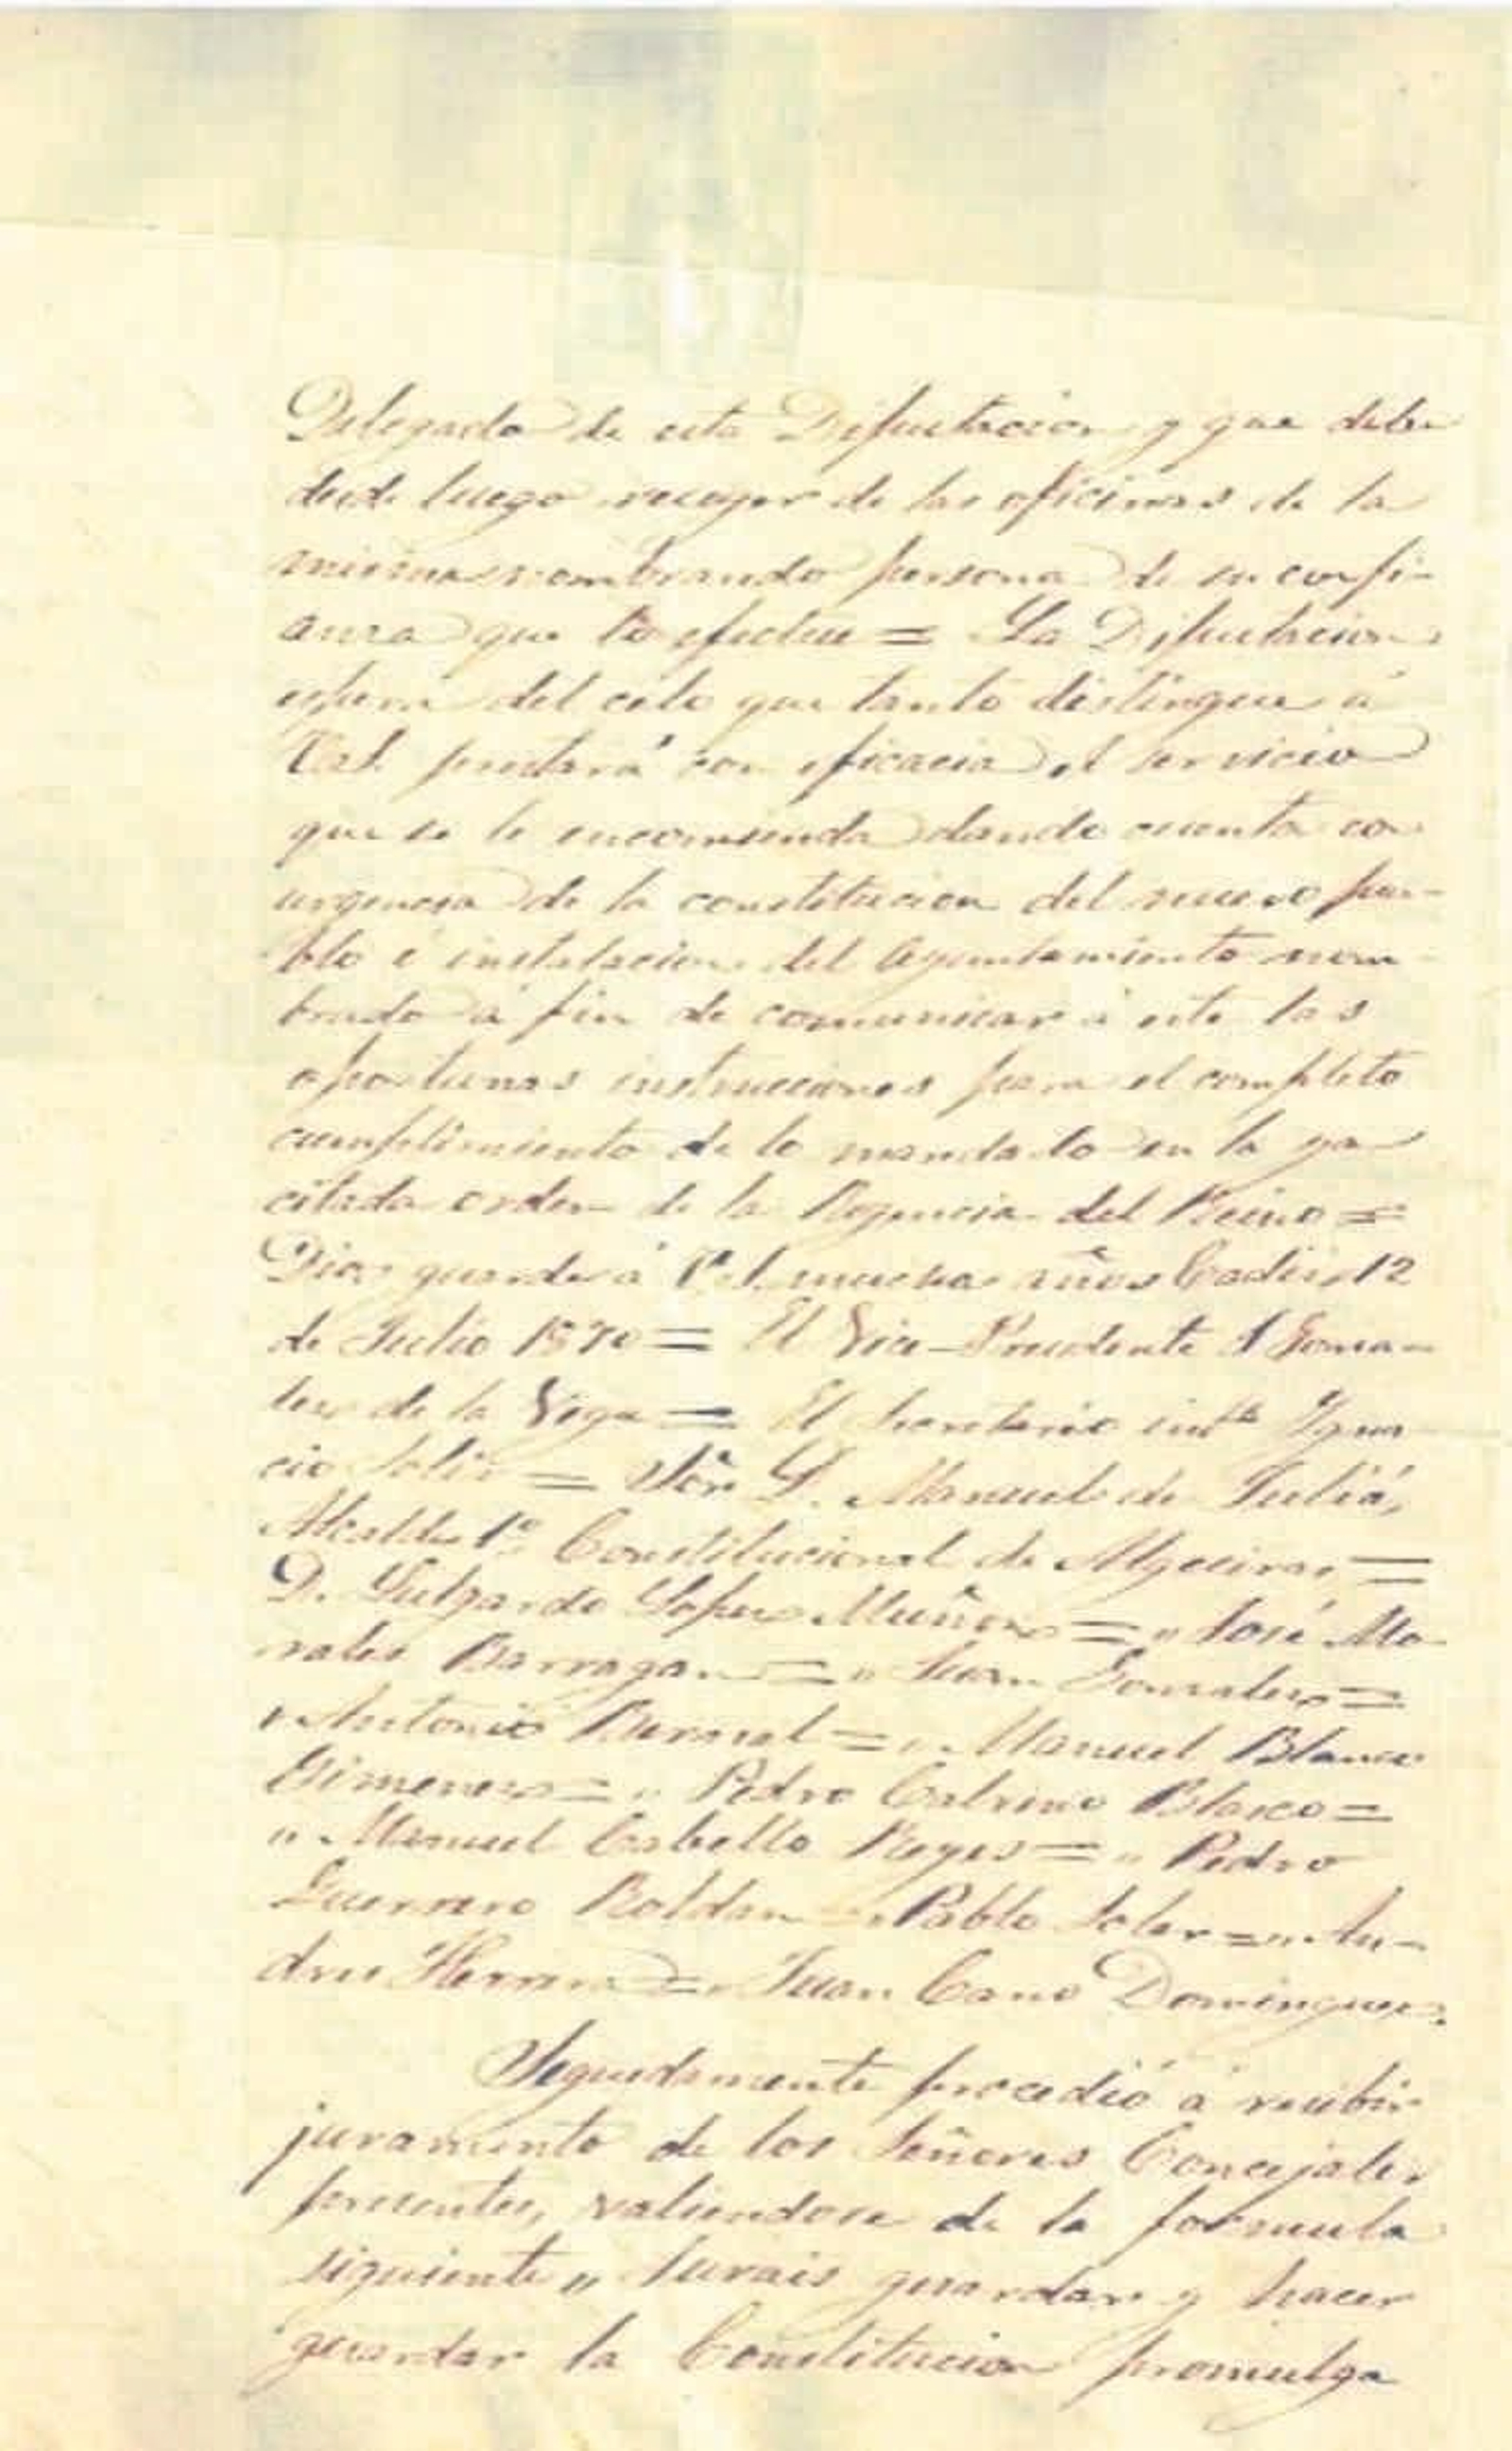 Delegado de esta Diputacion y que debe
desde luego recoger de las oficinas de la
misma nombrando persona de su confi-
anza que lo efectue = La Diputacion
espera del celo que tanto distingue á
prestará con eficacia el servicio
que se le encomienda dando cuenta con
urgencia de la constitucion del nuevo pue-
blo é instalacion del Ayuntamiento nom-
brado á fin de comunicar á este las
oportunas instrucciones para el completo
cumplimiento de lo mandado en la ya
citada orden de la Regencia del Reino =
Dios guarde á muchos años Cadiz 12
de Julio 1870 = El Vice-Presidente Gonza-
lez de la Vega = El Secretario intº Igna-
cio = Sõr D. Manuel de Juliá,
Alcalde 1º Constitucional de Algeciras =
D. Lutgardo Lopez Muñoz = " José Mo-
rales Barragan = " Juan Gonzalez =
" Antonio Bernal = " Manuel Blanco
Gimenez = " Pedro Calvino Blasco =
" Manuel Cabello Reyes = " Pedro
Guerrero Roldan = " Pablo Soler = " An-
dres Herrera = " Juan Cano Dominguez.
Seguidamente procedió á recibir
juramento de los Señores Concejales
presentes, valiendose de la formula
siguiente " Jurais guardar y hacer
guardar la Constitucion promulga